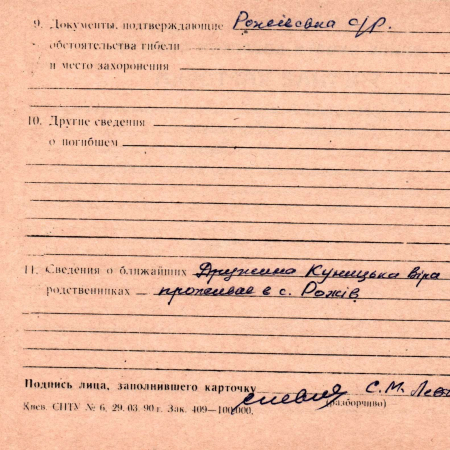 9. Документы, подтверждающие Рожівська с/р.
обстоятельства гибели
и место захоронения
10. Другие сведения
о погибшем
11. Сведения о ближайших Дружина Куницька Віра
родственниках проживає в с. Рожів
Подпись лица, заполнившего карточку С. М.
(разборчиво)
Киев. СПТУ № 6. 29. 03. 90 г. Зак. 409—100,000.